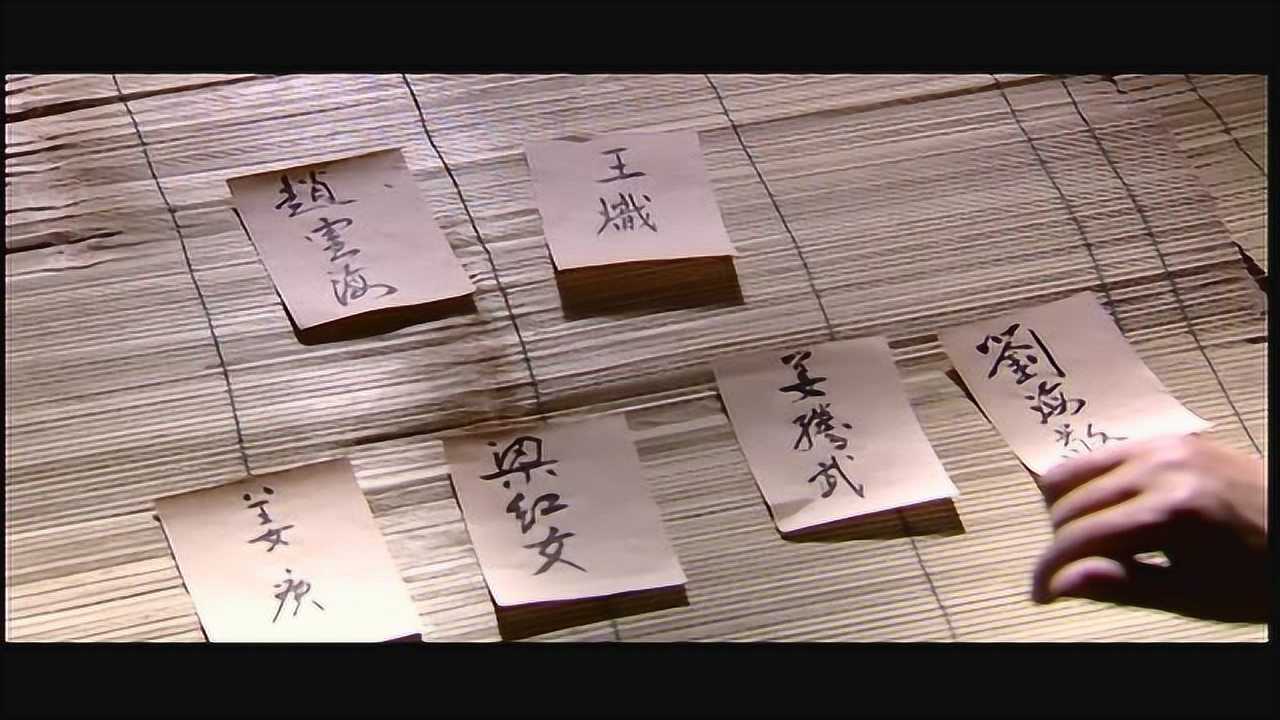 趙雲海
王熾
姜騰武
劉海
梁紅女
姜